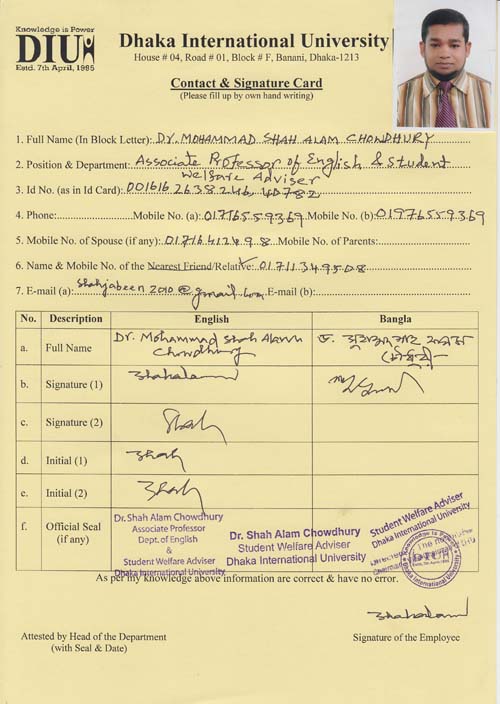 Knowledge is Power
DIU
Estd. 7th April, 1995
Dhaka International University
House # 04, Road # 01, Block # F, Banani, Dhaka-1213
Contact & Signature Card
(Please fill up by own hand writing)
1. Full Name (In Block Letter): Dr. MOHAMMAD SHAH ALAM CHOWDHURY
2. Position & Department: Associate Professor of English & Student
Welfare Adviser
3. Id No. (as in Id Card): 001616 2638246 40782
4. Phone: Mobile No. (a): 01716559369 Mobile No. (b): 01976559369
5. Mobile No. of Spouse (if any): 01716412498 Mobile No. of Parents:
6. Name & Mobile No. of the Nearest Friend/Relative: 01711349508
7. E-mail (a): Shahjabeen2010@gmail.com E-mail (b):
No. Description English Bangla
a. Full Name Dr. Mohammad Shah Alam Chowdhury ড. মুহাম্মদ শাহ আলম চৌধুরী
b. Signature (1) Shahalam
c. Signature (2) Shah
d. Initial (1) Shah
e. Initial (2) Shah
f. Official Seal (if any)
Dr. Shah Alam Chowdhury
Associate Professor
Dept. of English
&
Student Welfare Adviser
Dhaka International University
Dr. Shah Alam Chowdhury
Student Welfare Adviser
Dhaka International University
Student Welfare Adviser
Dhaka International University
Knowledge is Power
DIU
Dhaka International University
As per my knowledge above information are correct & have no error.
Shahalam
Attested by Head of the Department
(with Seal & Date)
Signature of the Employee